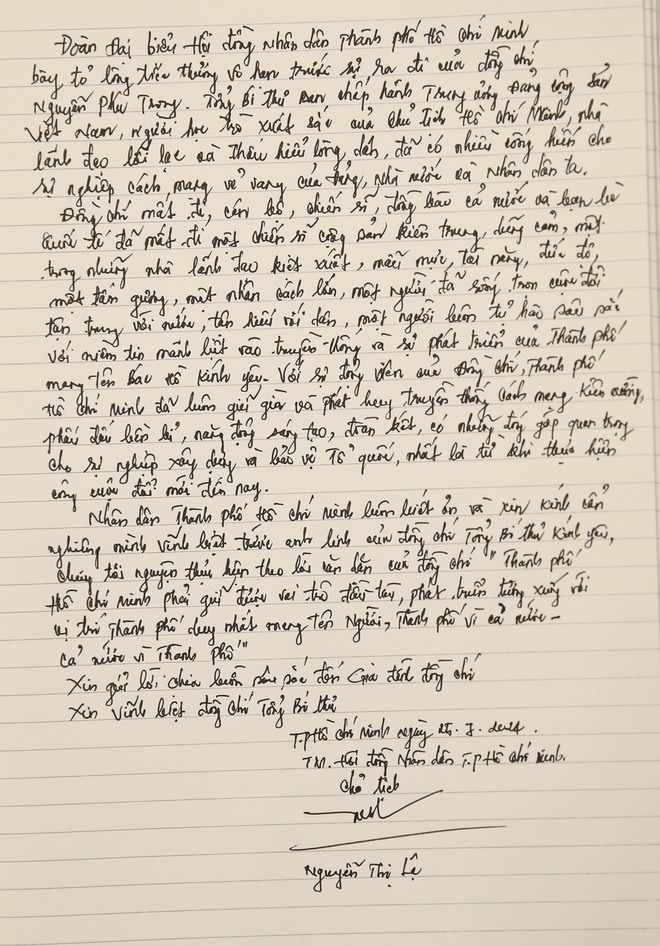 Đoàn Đại biểu Hội đồng Nhân dân Thành phố Hồ Chí Minh
bày tỏ lòng tiếc thương vô hạn trước sự ra đi của đồng chí
Nguyễn Phú Trọng. Tổng Bí thư Ban chấp hành Trung ương Đảng cộng sản
Việt Nam, người học trò xuất sắc của Chủ tịch Hồ Chí Minh, nhà
lãnh đạo lỗi lạc và thấu hiểu lòng dân, đã có nhiều cống hiến cho
sự nghiệp cách mạng vẻ vang của Đảng, Nhà nước và Nhân dân ta.
Đồng chí mất đi, cán bộ, chiến sĩ, đồng bào cả nước và bạn bè
Quốc tế đã mất đi một chiến sĩ cộng sản kiên trung, dũng cảm, một
trong những nhà lãnh đạo kiệt xuất, mẫu mực, tài năng, đức độ,
một tấm gương, một nhân cách lớn, một người đã sống trọn cuộc đời
tận trung với nước, tận hiếu với dân, một người luôn tự hào sâu sắc
với niềm tin mãnh liệt vào truyền thống và sự phát triển của Thành phố
mang tên Bác Hồ kính yêu. Với sự động viên của Đồng chí, Thành phố
Hồ Chí Minh đã luôn giữ gìn và phát huy truyền thống cách mạng kiên cường,
phấn đấu bền bỉ, năng động sáng tạo, đoàn kết, có những đóng góp quan trọng
cho sự nghiệp xây dựng và bảo vệ Tổ quốc, nhất là từ khi thực hiện
công cuộc đổi mới đến nay.
Nhân dân Thành phố Hồ Chí Minh luôn biết ơn và xin kính cẩn
nghiêng mình vĩnh biệt trước anh linh của đồng chí Tổng Bí thư kính yêu,
chúng tôi nguyện thực hiện theo lời căn dặn của đồng chí "Thành phố
Hồ Chí Minh phải giữ được vai trò đầu tàu, phát triển xứng với
vị trí Thành phố duy nhất mang tên Người, Thành phố vì cả nước -
cả nước vì Thành phố"
Xin gửi lời chia buồn sâu sắc đến Gia đình đồng chí
Xin vĩnh biệt đồng chí Tổng Bí thư
T.P Hồ Chí Minh ngày 25.7.2024.
TM. Hội đồng Nhân dân T.P Hồ Chí Minh.
Chủ tịch
Nguyễn Thị Lệ